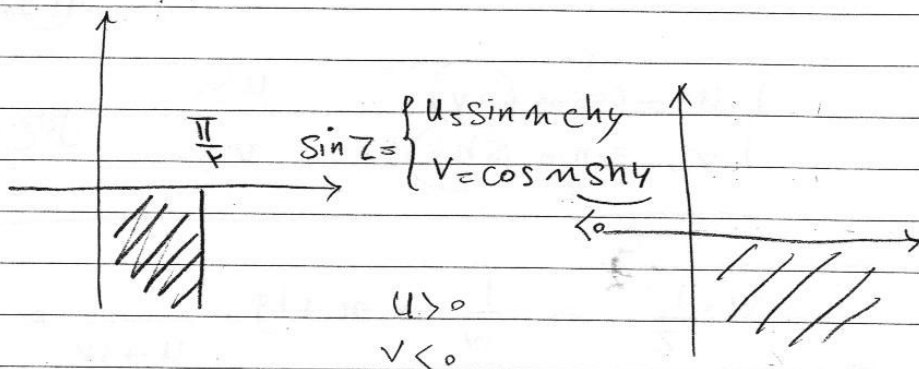 π/۲
sin z = { u = sin x chy
v = cos x shy
<0
u > 0
v < 0